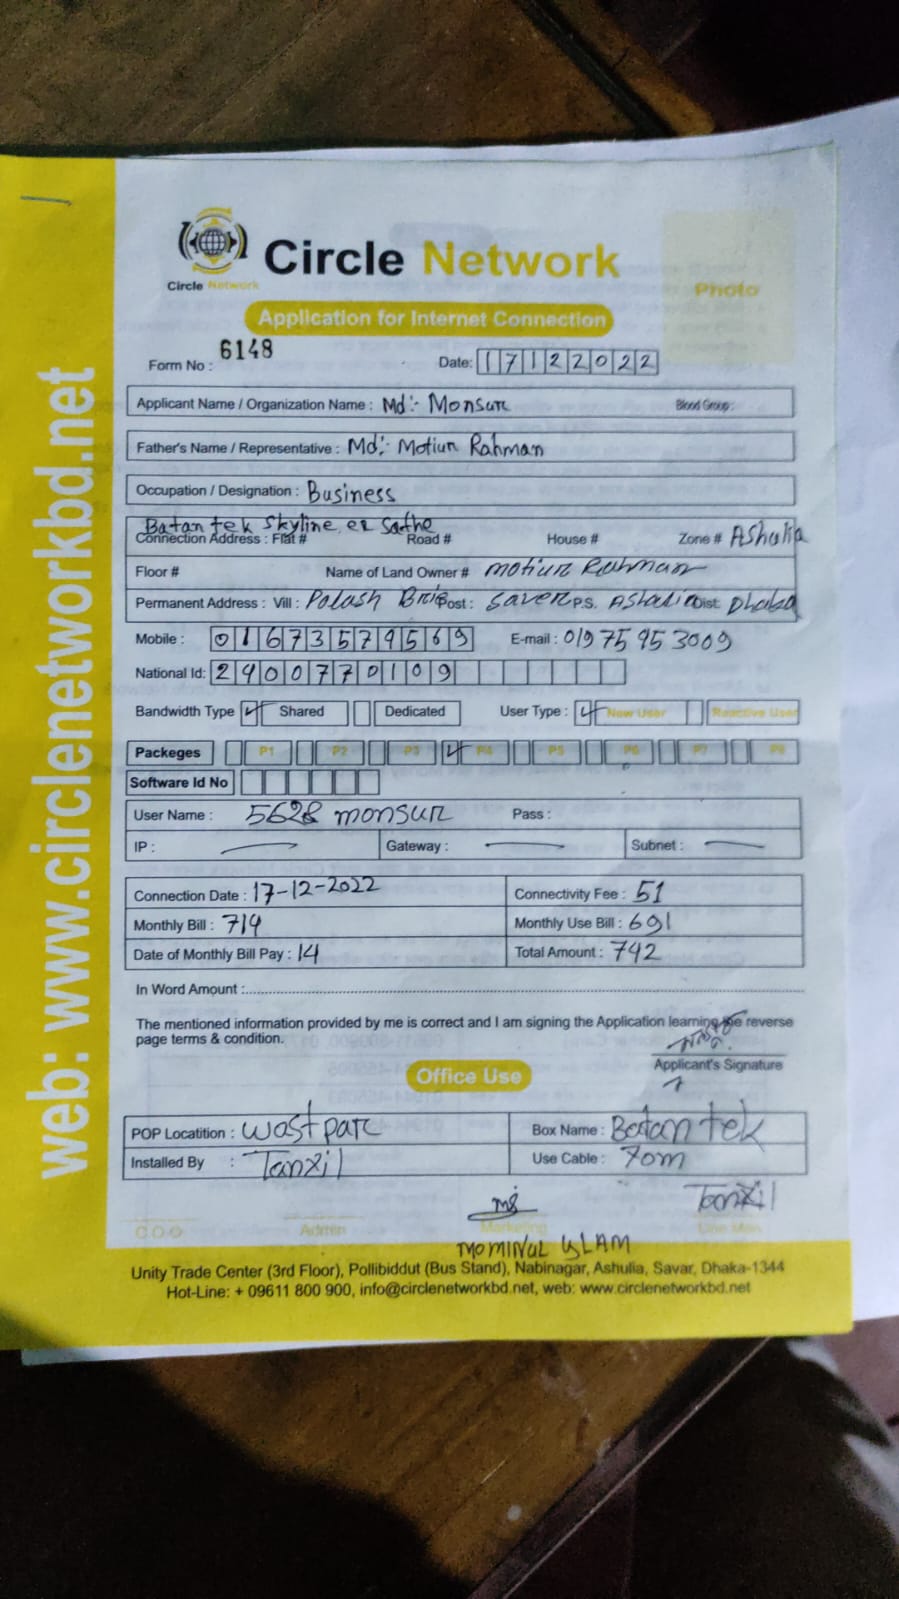 Circle Network
Circle Network
Photo
Application for Internet Connection
Form No : 6148
Date: 17122022
Applicant Name / Organization Name : Md:- Monsur
Blood Group :
Father's Name / Representative : Md:- Motiur Rahman
Occupation / Designation : Business
Batan tek skyline er sathe
Connection Address : Flat # Road # House # Zone # Ashulia
Floor # Name of Land Owner # motiur Rahman
Permanent Address : Vill : Palash Post : Saver P.S. Ashulia Dist: Dhaka
Mobile : 01673579569 E-mail : 01975953009
National Id: 2400770109
Bandwidth Type Shared Dedicated User Type : New User Reactive User
Packeges P1 P2 P3 P4 P5 P6 P7 P8
Software Id No
User Name : 5628 monsur Pass :
IP : Gateway : Subnet :
Connection Date : 17-12-2022 Connectivity Fee : 51
Monthly Bill : 714 Monthly Use Bill : 691
Date of Monthly Bill Pay : 14 Total Amount : 742
In Word Amount :
The mentioned information provided by me is correct and I am signing the Application learning the reverse
page terms & condition.
Applicant's Signature
Office Use
POP Locatition : wastparc Box Name : Batan tek
Installed By : Tanxil Use Cable : 70m
Tanxil
C.O.O Admin Marketing Line Man
MOMINUL ISLAM
Unity Trade Center (3rd Floor), Pollibiddut (Bus Stand), Nabinagar, Ashulia, Savar, Dhaka-1344
Hot-Line: + 09611 800 900, info@circlenetworkbd.net, web: www.circlenetworkbd.net
web: www.circlenetworkbd.net